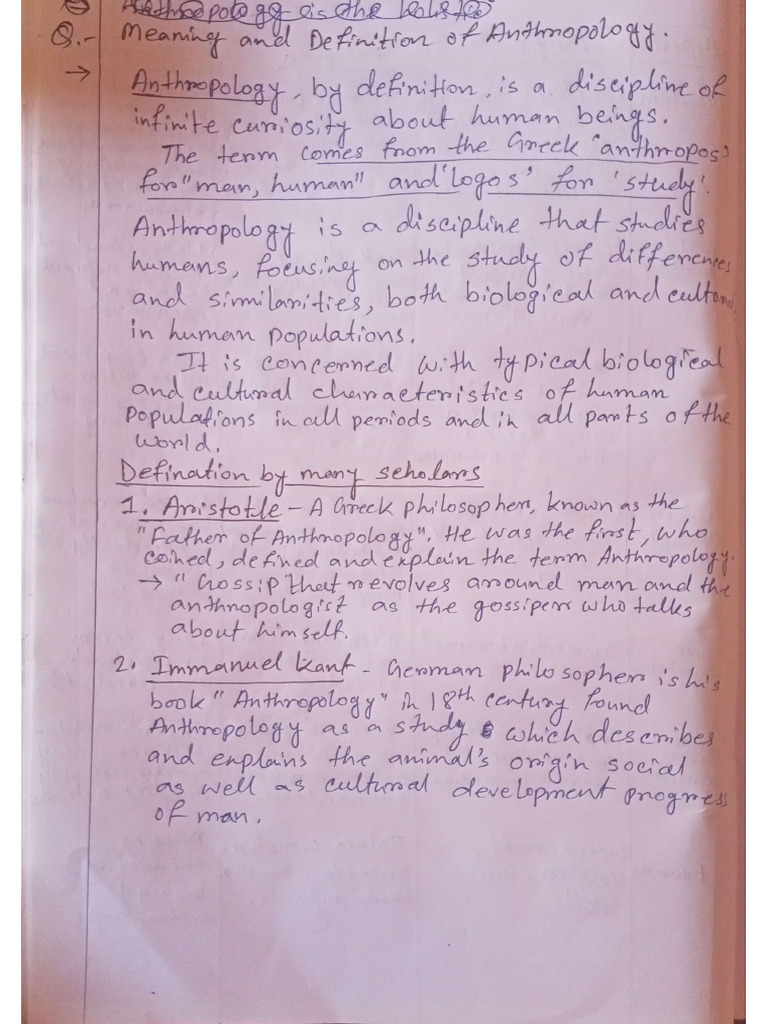 Anthropology is the
Q.- Meaning and Definition of Anthropology.
→ Anthropology, by definition, is a discipline of
infinite curiosity about human beings.
The term comes from the Greek 'anthropos'
for "man, human" and 'logos' for 'study'.
Anthropology is a discipline that studies
humans, focusing on the study of differences
and similarities, both biological and cultural
in human populations.
It is concerned with typical biological
and cultural characteristics of human
populations in all periods and in all parts of the
world.
Defination by many scholars
1. Aristotle - A Greek philosopher, known as the
"Father of Anthropology". He was the first, who
coined, defined and explain the term Anthropology.
→ "Gossip that revolves around man and the
anthropologist as the gossiper who talks
about himself.
2. Immanuel Kant - German philosopher is his
book "Anthropology" in 18th century found
Anthropology as a study which describes
and explains the animal's origin social
as well as cultural development progress
of man.